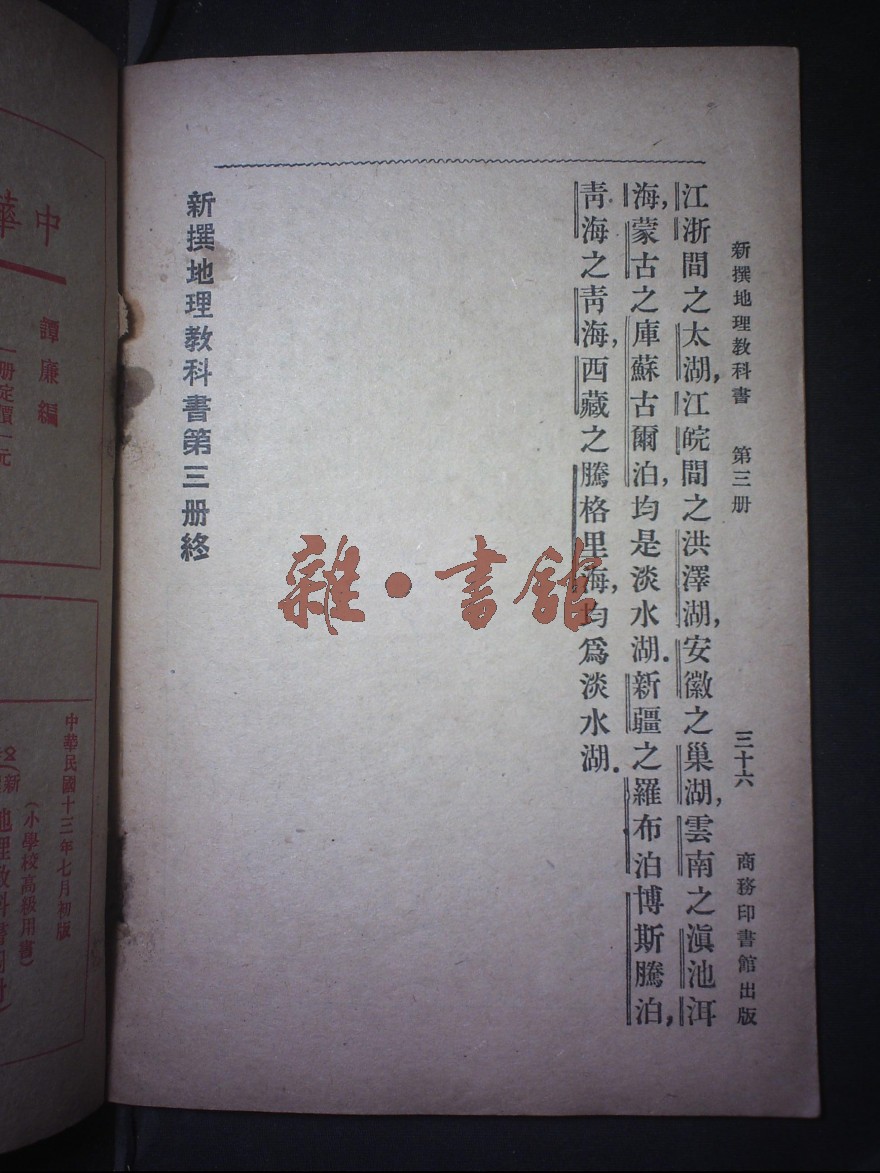 新撰地理教科書 第三册 三十六 商務印書館出版
江浙間之太湖,江皖間之洪澤湖,安徽之巢湖,雲南之滇池洱
海,蒙古之庫蘇古爾泊,均是淡水湖.新疆之羅布泊博斯騰泊,
青海之青海,西藏之騰格里海,均爲淡水湖.
新撰地理教科書第三册終
雜·書館
中華
譚廉編
一册定價一元
中華民國十三年七月初版
(小學校高級用書)
新
地理教科書